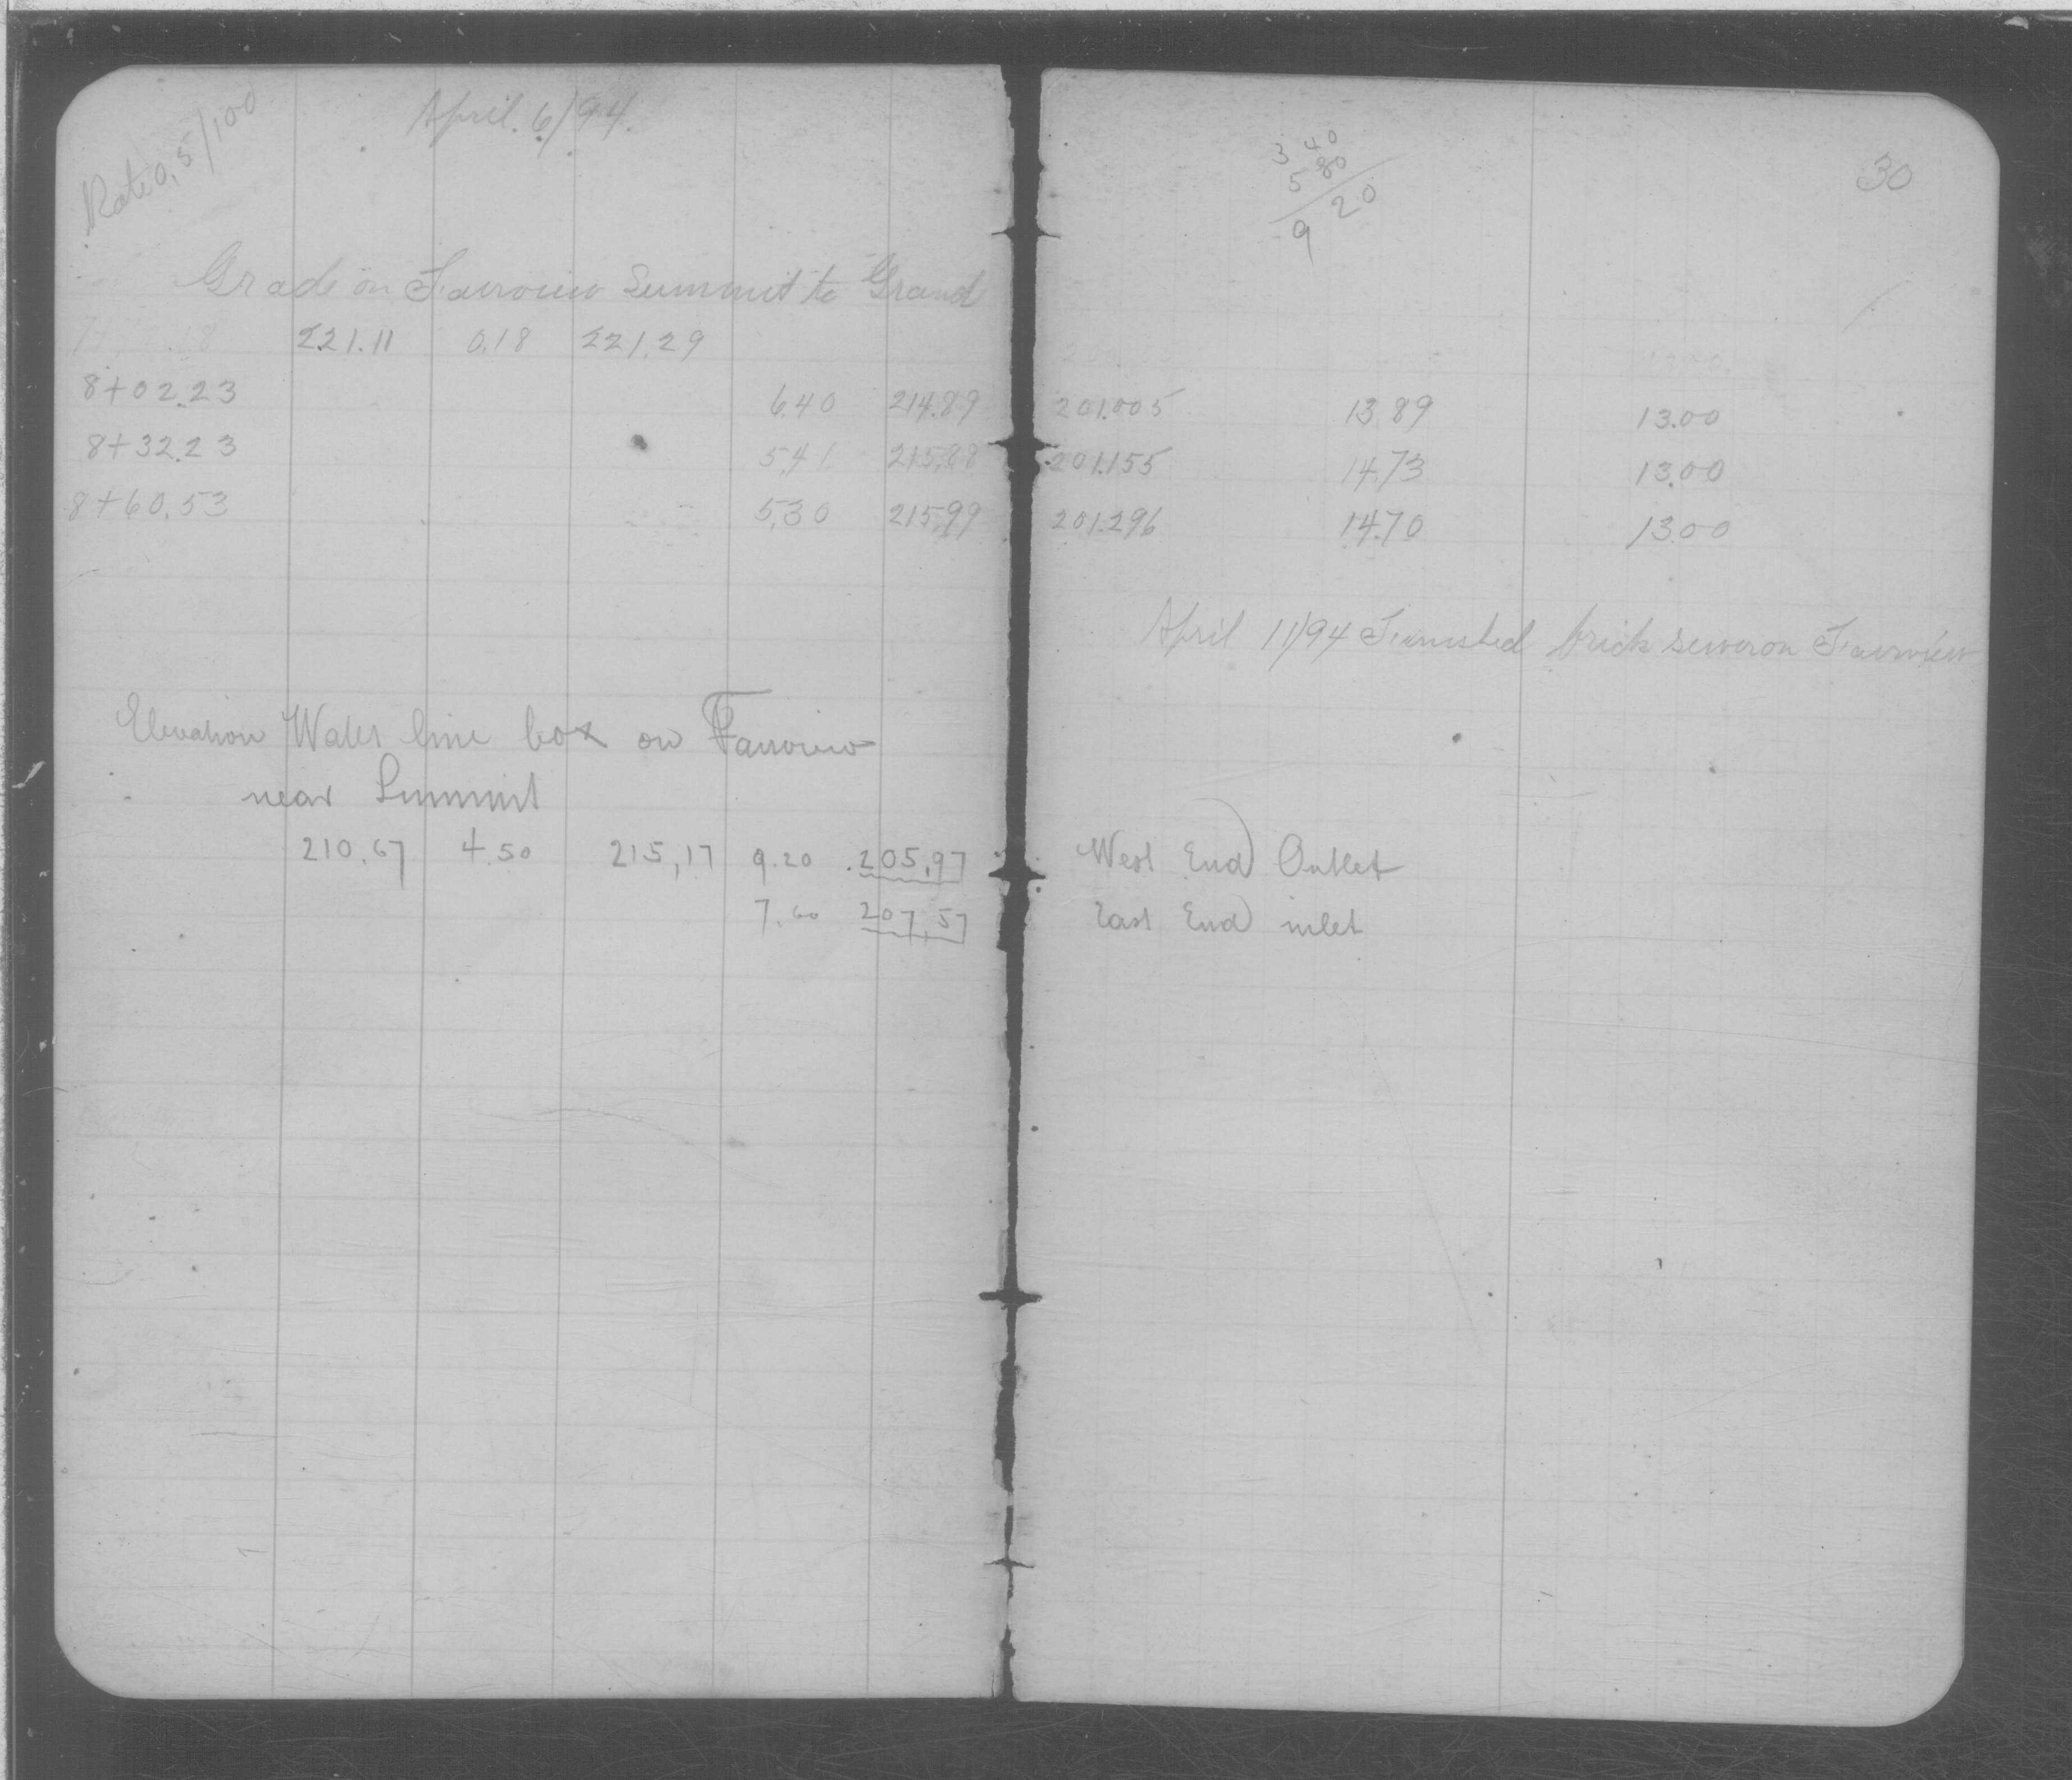 Rate 0,5/100
April. 6/94.
Grade on Fairview Summit to Grand
221.11 0.18 221.29
8+02.23 6.40 214.89
8+32.23 5,41 215,88
8+60.53 5,30 215,99
Elevation Water line box on Fairview
near Summit
210.67 4.50 215,17 9.20 .205,97
7.60 207,57
3 40
5 80
9 20
30
201.005 13 89 13.00
201.155 14.73 13.00
201.296 14.70 13.00
April 11/94 Finished brick sewer on Fairview
West End Outlet
East End inlet